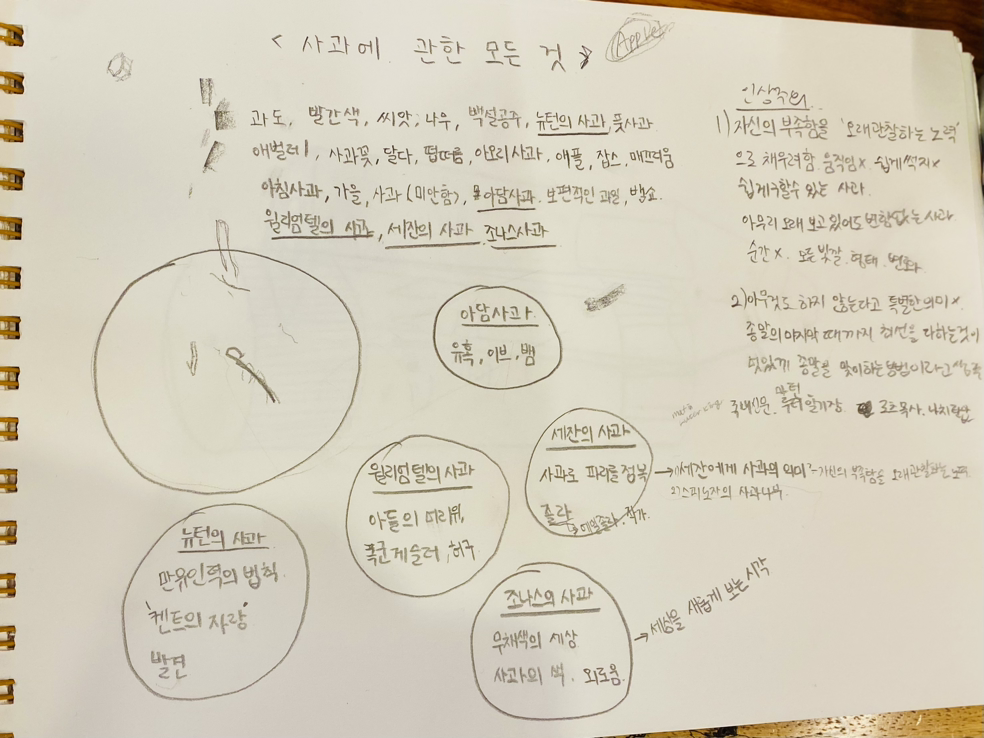 < 사과에 관한 모든 것 >
Apple
과도, 빨간색, 씨앗, 나무, 백설공주, 뉴턴의 사과, 풋사과
애벌레, 사과꽃, 달다, 떫떠름, 아오리사과, 애플, 잡스, 매끄러움
아침사과, 가을, 사과(미안함), 아담사과, 보편적인 과일, 뱀쇼
윌리엄텔의 사과, 세잔의 사과, 조나스사과
아담사과
유혹, 이브, 뱀
세잔의 사과
사과로 파리를 정복
졸라
에밀졸라, 작가
윌리엄텔의 사과
아들의 머리위,
폭군게슬러, 허구
뉴턴의 사과
만유인력의 법칙
'켄트의 자랑'
발견
조나스의 사과
무채색의 세상
사과의 색, 외로움
→ 세상을 새롭게 보는 시각
인상주의
1) 자신의 부족함을 '오래관찰하는 노력'
으로 채우려함. 움직임x 쉽게썩지x
쉽게구할수 있는 사과.
아무리 오래 보고 있어도 변함없는 사과
순간x. 모든 빛깔. 형태. 변화
2) 아무것도 하지 않는다고 특별한 의미x
종말의 마지막 때까지 최선을 다하는것이
멋있게 종말을 맞이하는 방법이라고
국내신문. 루터 일기장 목사. 나치
→ 1) 세잔에게 사과의 의미 - 자신의 부족함을 오래관찰하는 노력
2) 스피노자의 사과나무